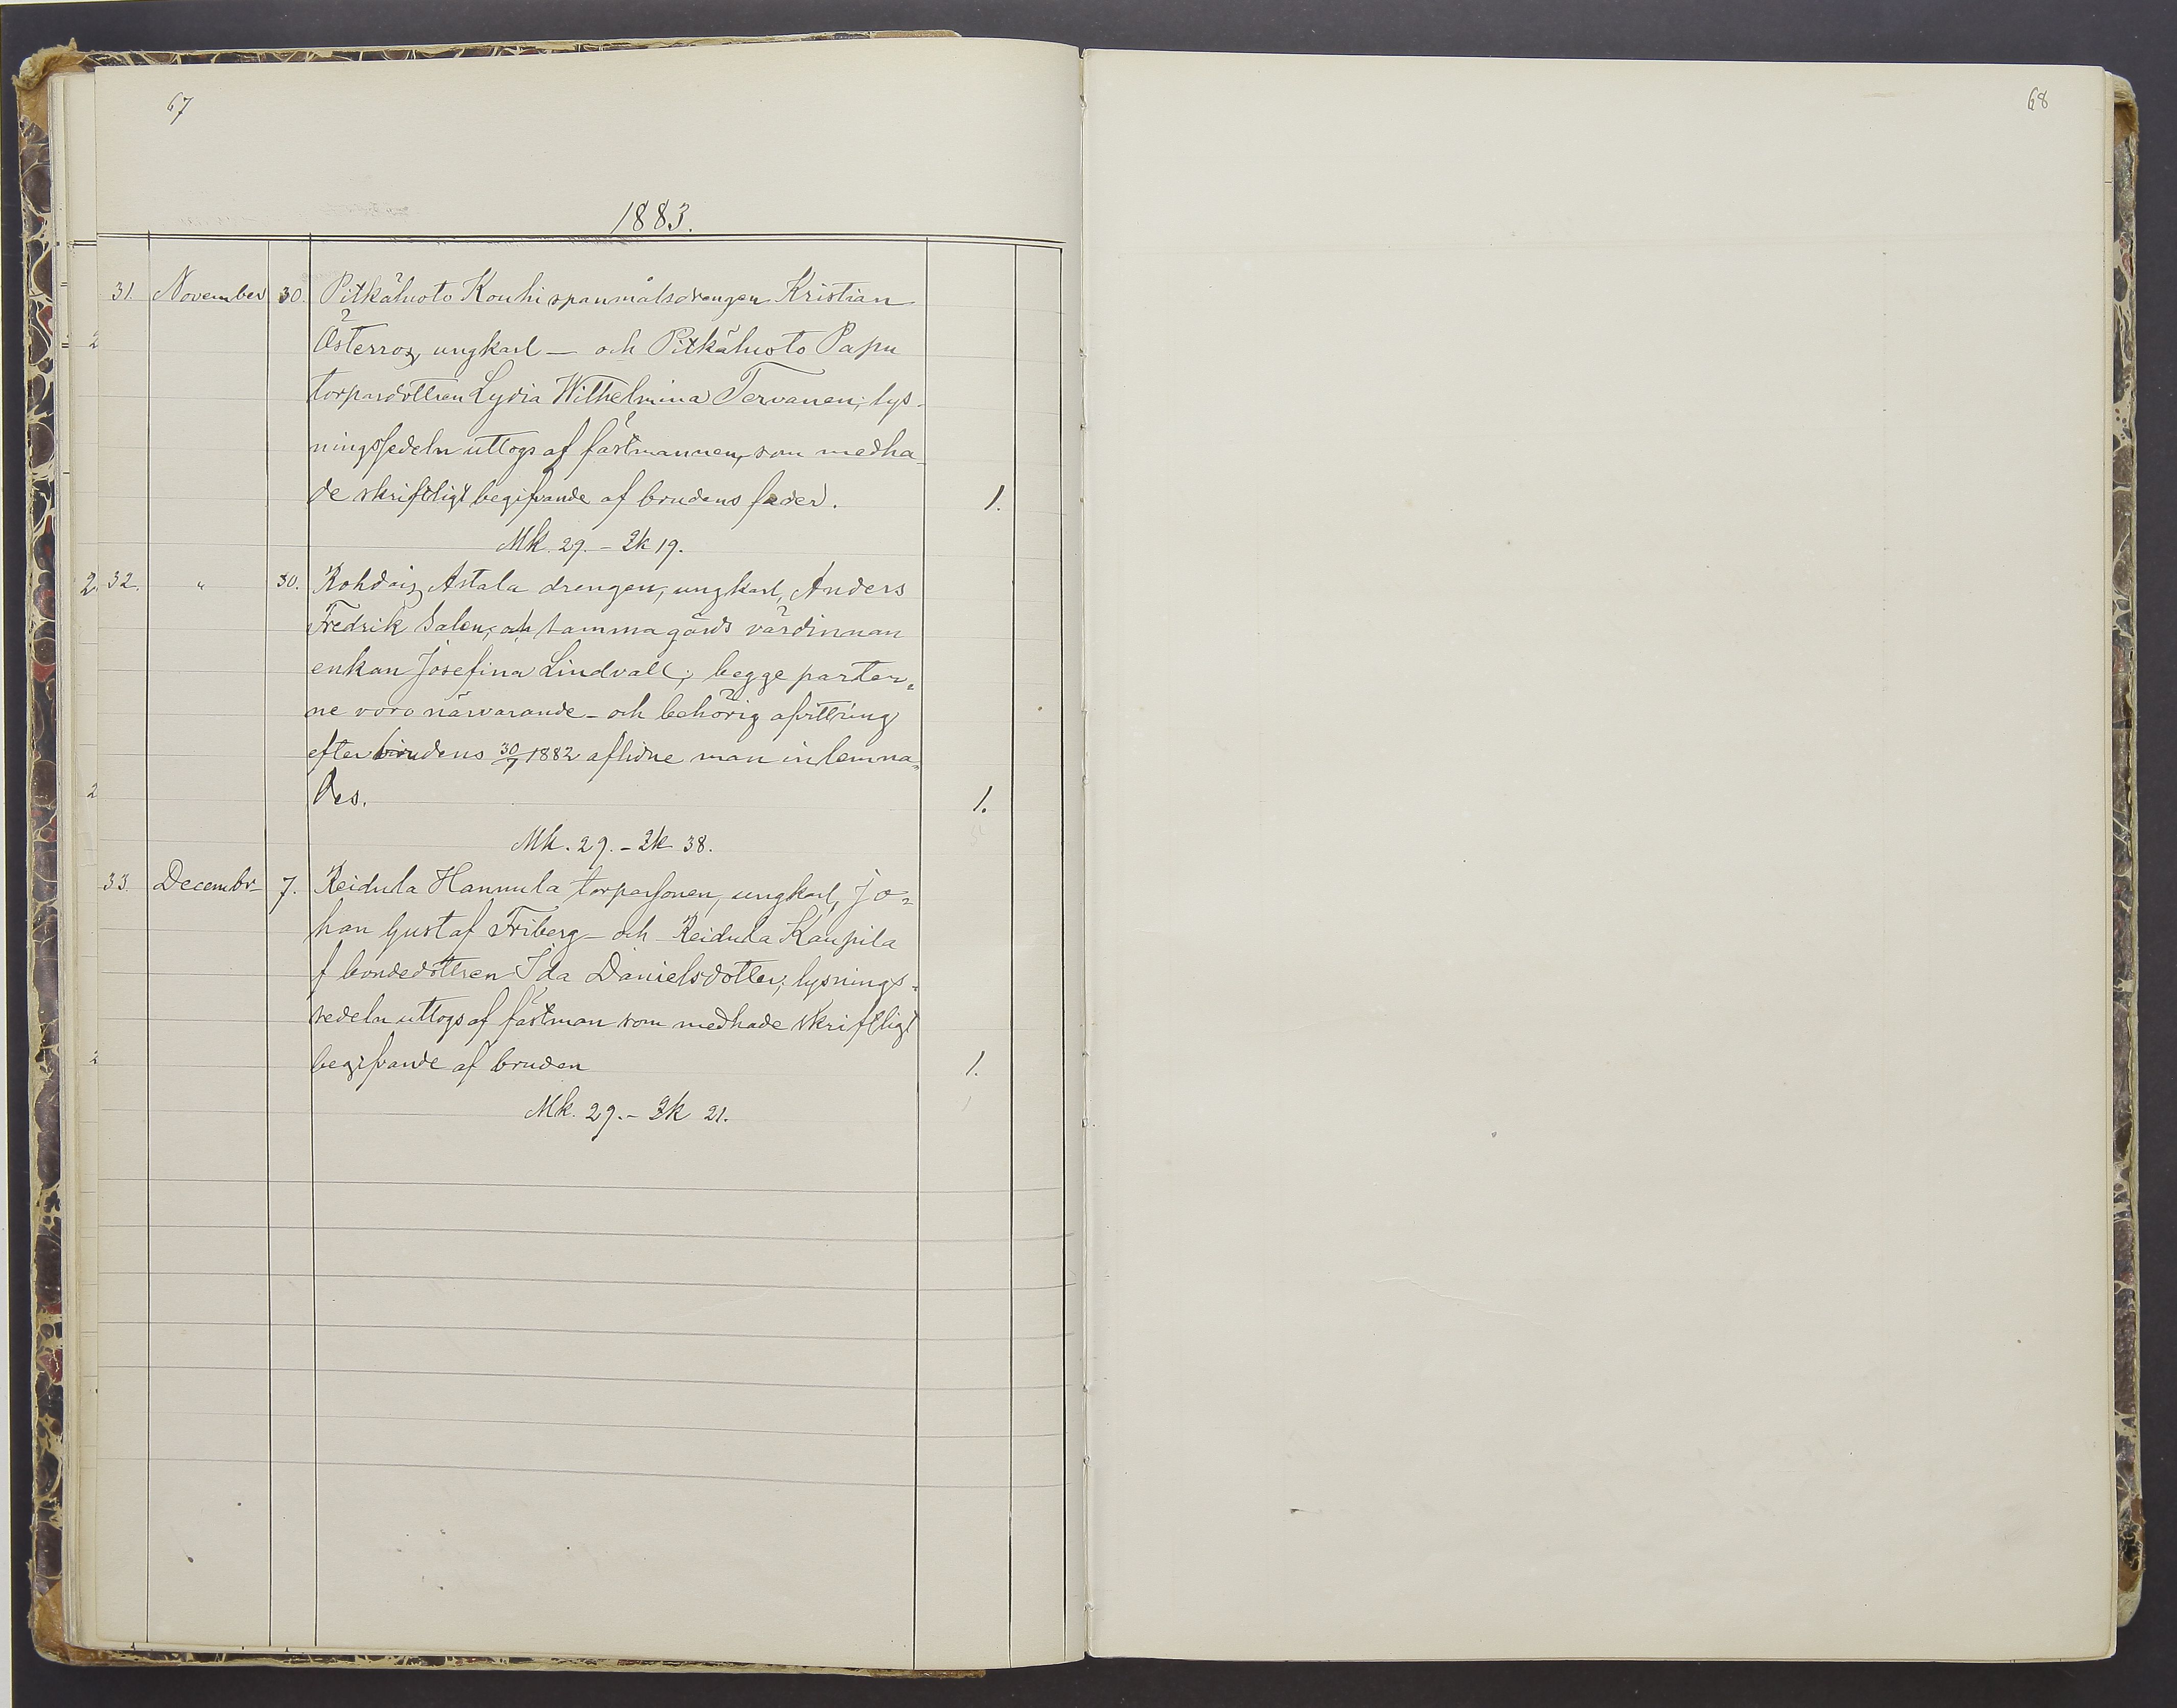 67
68
1883.
31. November 30. Pitkäluoto Kouhi spanmålsdrengen Kristian
Österros, ungkarl — och Pitkäluoto Papu
torpardottren Lydia Wilhelmina Tervanen; lys-
ningssedeln uttogs af fästmannen, som medha-
de skriftligt begifvande af brudens fader. 1.
Mk. 29. – Sk 19.
32. " 30. Kohdais Astala drengen, ungkarl, Anders
Fredrik Salen; och samma gårds värdinnan
enkan Josefina Lindvall; begge parter-
ne voro närvarande – och behörig afvittring
efter brudens 30/7 1882 aflidne man inlemna-
des. 1.
Mk. 29. – Sk 38.
33. Decembr 7. Reidula Hannula torparsonen, ungkarl, Jo-
han Gustaf Friberg – och Reidula Kaupila
f bondedottren Ida Danielsdotter; lysnings-
sedeln uttogs af fästman som medhade skriftligt
begifvande af bruden 1.
Mk. 29. – Sk 21.